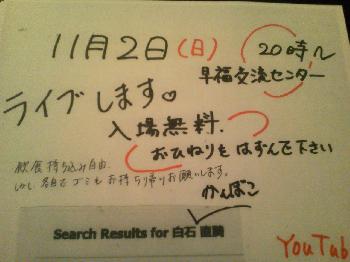 11月2日(日) 20時～
早福交流センター
ライブします♡
入場無料.
おひねりをはずんで下さい
飲食持ち込み自由.
しかし各自でゴミもお持ち帰りお願いします。
かんぽこ
Search Results for 白石
YouTub